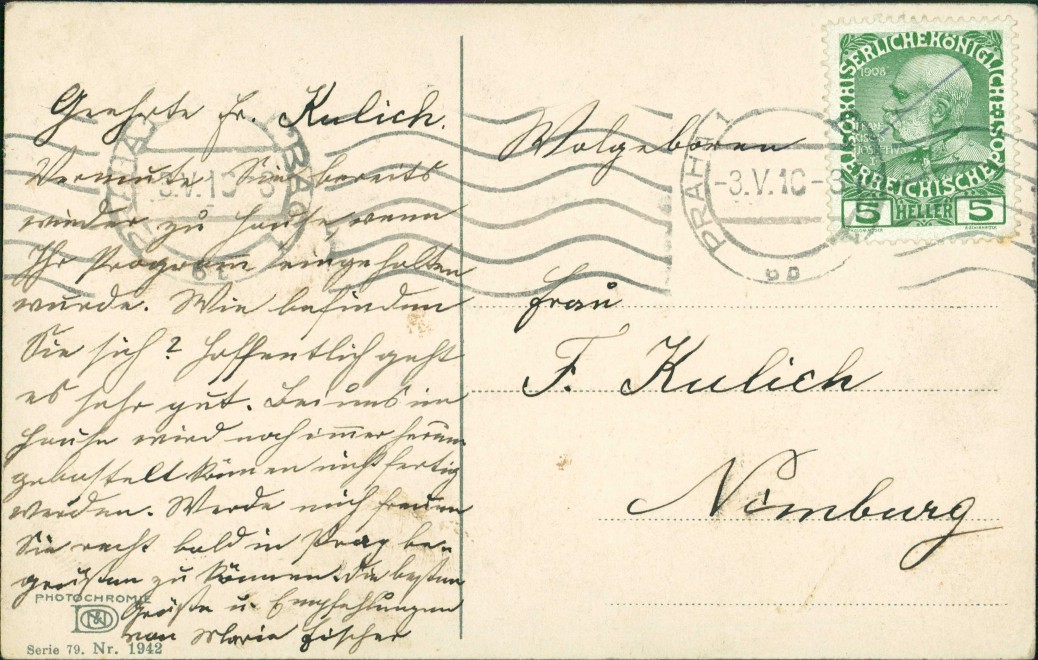 Geehrte Fr. Kulich.
Vermute Sie bereits
wieder zu Hause, wenn
Ihr Program eingehalten
wurde. Wie befinden
Sie sich? Hoffentlich geht
es sehr gut. Bei uns im
Hause wird noch immer herum
gebastelt können nicht fertig
werden. Werde mich freuen
Sie recht bald in Prag be-
grüßen zu können. Die besten
Grüße u. Empfehlungen
von Marie Fischer
PHOTOCHROMIE
Serie 79. Nr. 1942
Wolgeboren
Frau
F. Kulich
Nimburg
PRAHA 1
-3.V.10-8
6b
KAISERLICHE KÖNIGLICHE
ÖSTERREICHISCHE POST
1908
5 HELLER 5